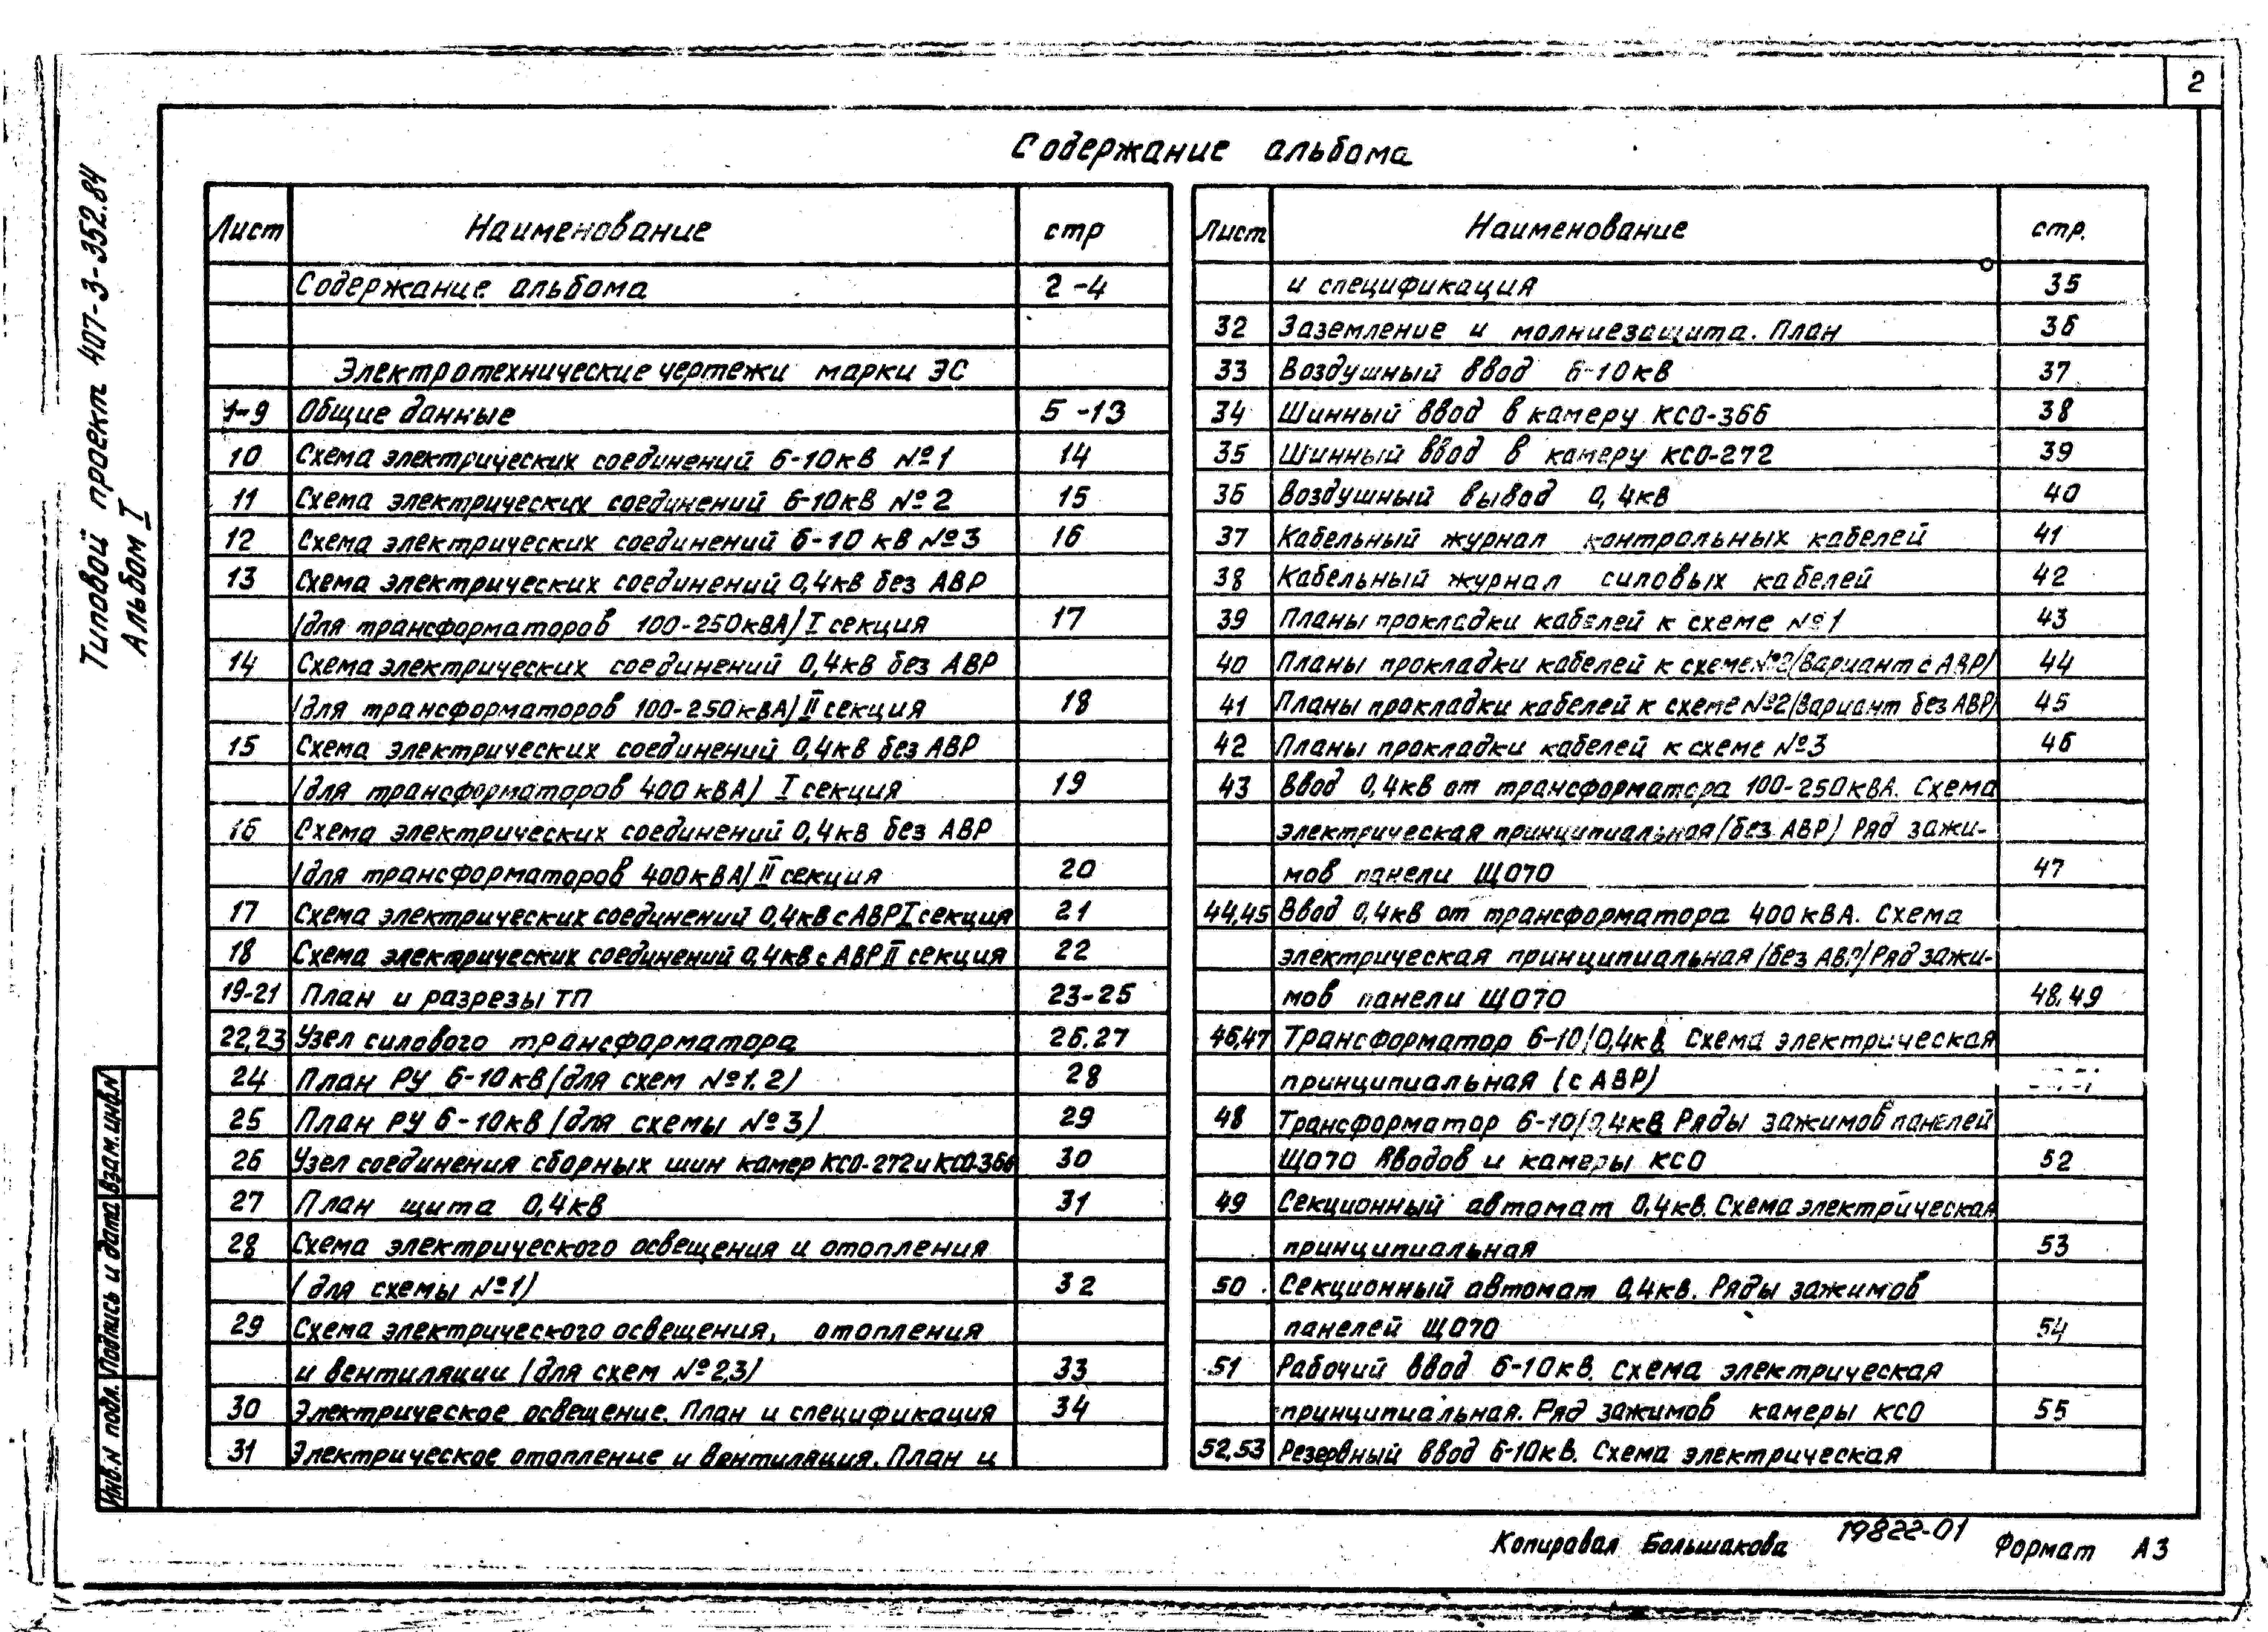 2
Типовой проект 407-3-352.84
Альбом I
Содержание альбома
Лист Наименование стр
Содержание альбома 2-4
Электротехнические чертежи марки ЭС
1-9 Общие данные 5-13
10 Схема электрических соединений 6-10кВ №1 14
11 Схема электрических соединений 6-10кВ №2 15
12 Схема электрических соединений 6-10 кВ №3 16
13 Схема электрических соединений 0,4кВ без АВР
/для трансформаторов 100-250кВА/ I секция 17
14 Схема электрических соединений 0,4кВ без АВР
/для трансформаторов 100-250кВА/ II секция 18
15 Схема электрических соединений 0,4кВ без АВР
/для трансформаторов 400кВА/ I секция 19
16 Схема электрических соединений 0,4кВ без АВР
/для трансформаторов 400кВА/ II секция 20
17 Схема электрических соединений 0,4кВ с АВР I секция 21
18 Схема электрических соединений 0,4кВ с АВР II секция 22
19-21 План и разрезы ТП 23-25
22,23 Узел силового трансформатора 26.27
24 План РУ 6-10кВ /для схем №1.2/ 28
25 План РУ 6-10кВ /для схемы №3/ 29
26 Узел соединения сборных шин камер КСО-272 и КСО-366 30
27 План щита 0,4кВ 31
28 Схема электрического освещения и отопления
(для схемы №1) 32
29 Схема электрического освещения, отопления
и вентиляции /для схем №2,3/ 33
30 Электрическое освещение. План и спецификация 34
31 Электрическое отопление и вентиляция. План и
Лист Наименование стр.
и спецификация 35
32 Заземление и молниезащита. План 36
33 Воздушный ввод 6-10кВ 37
34 Шинный ввод в камеру КСО-366 38
35 Шинный ввод в камеру КСО-272 39
36 Воздушный вывод 0,4кВ 40
37 Кабельный журнал контрольных кабелей 41
38 Кабельный журнал силовых кабелей 42
39 Планы прокладки кабелей к схеме №1 43
40 Планы прокладки кабелей к схеме №2/Вариант с АВР/ 44
41 Планы прокладки кабелей к схеме №2/Вариант без АВР/ 45
42 Планы прокладки кабелей к схеме №3 46
43 Ввод 0,4кВ от трансформатора 100-250кВА. Схема
электрическая принципиальная/без АВР/ Ряд зажи-
мов панели ЩО70 47
44,45 Ввод 0,4кВ от трансформатора 400кВА. Схема
электрическая принципиальная/без АВР/ Ряд зажи-
мов панели ЩО70 48,49
46,47 Трансформатор 6-10/0,4кВ Схема электрическая
принципиальная (с АВР)
48 Трансформатор 6-10/0,4кВ Ряды зажимов панелей
ЩО70 Вводов и камеры КСО 52
49 Секционный автомат 0,4кВ. Схема электрическая
принципиальная 53
50 Секционный автомат 0,4кВ. Ряды зажимов
панелей ЩО70 54
51 Рабочий ввод 6-10кВ. Схема электрическая
принципиальная. Ряд зажимов камеры КСО 55
52,53 Резервный ввод 6-10кВ. Схема электрическая
Инв.N подл. Подпись и дата Взам.инв.N
Копировал Большакова 19822-01 Формат А3